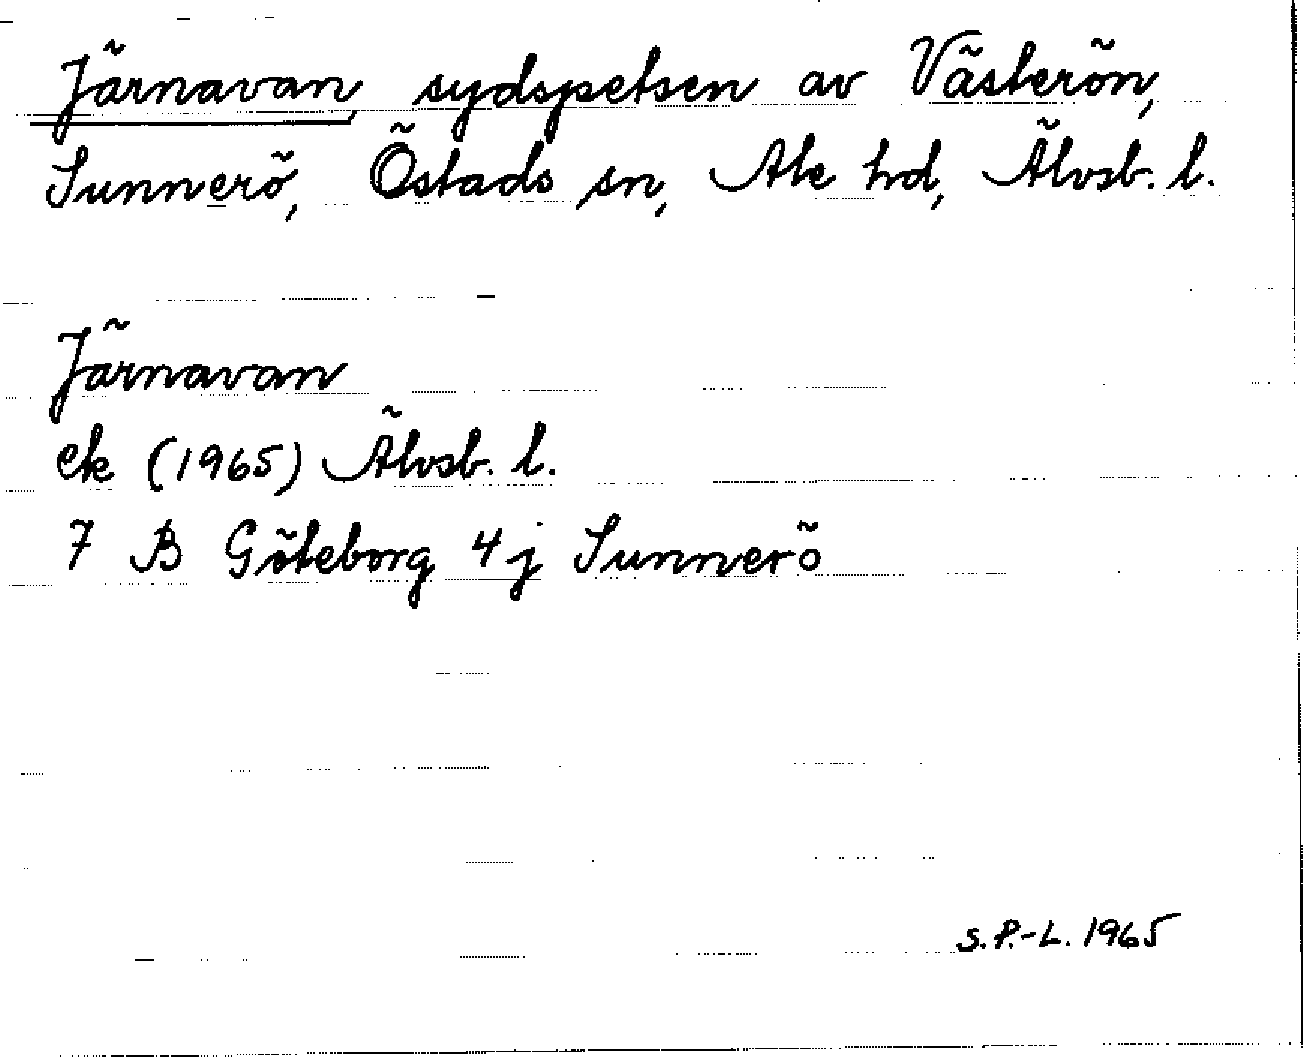 Järnavan, sydspetsen av Västerön,
Sunnerö, Östads sn, Ale hd, Älvsb. l.
Järnavan
ek (1965) Älvsb. l.
7 B Göteborg 4 j Sunnerö
S.P.-L. 1965